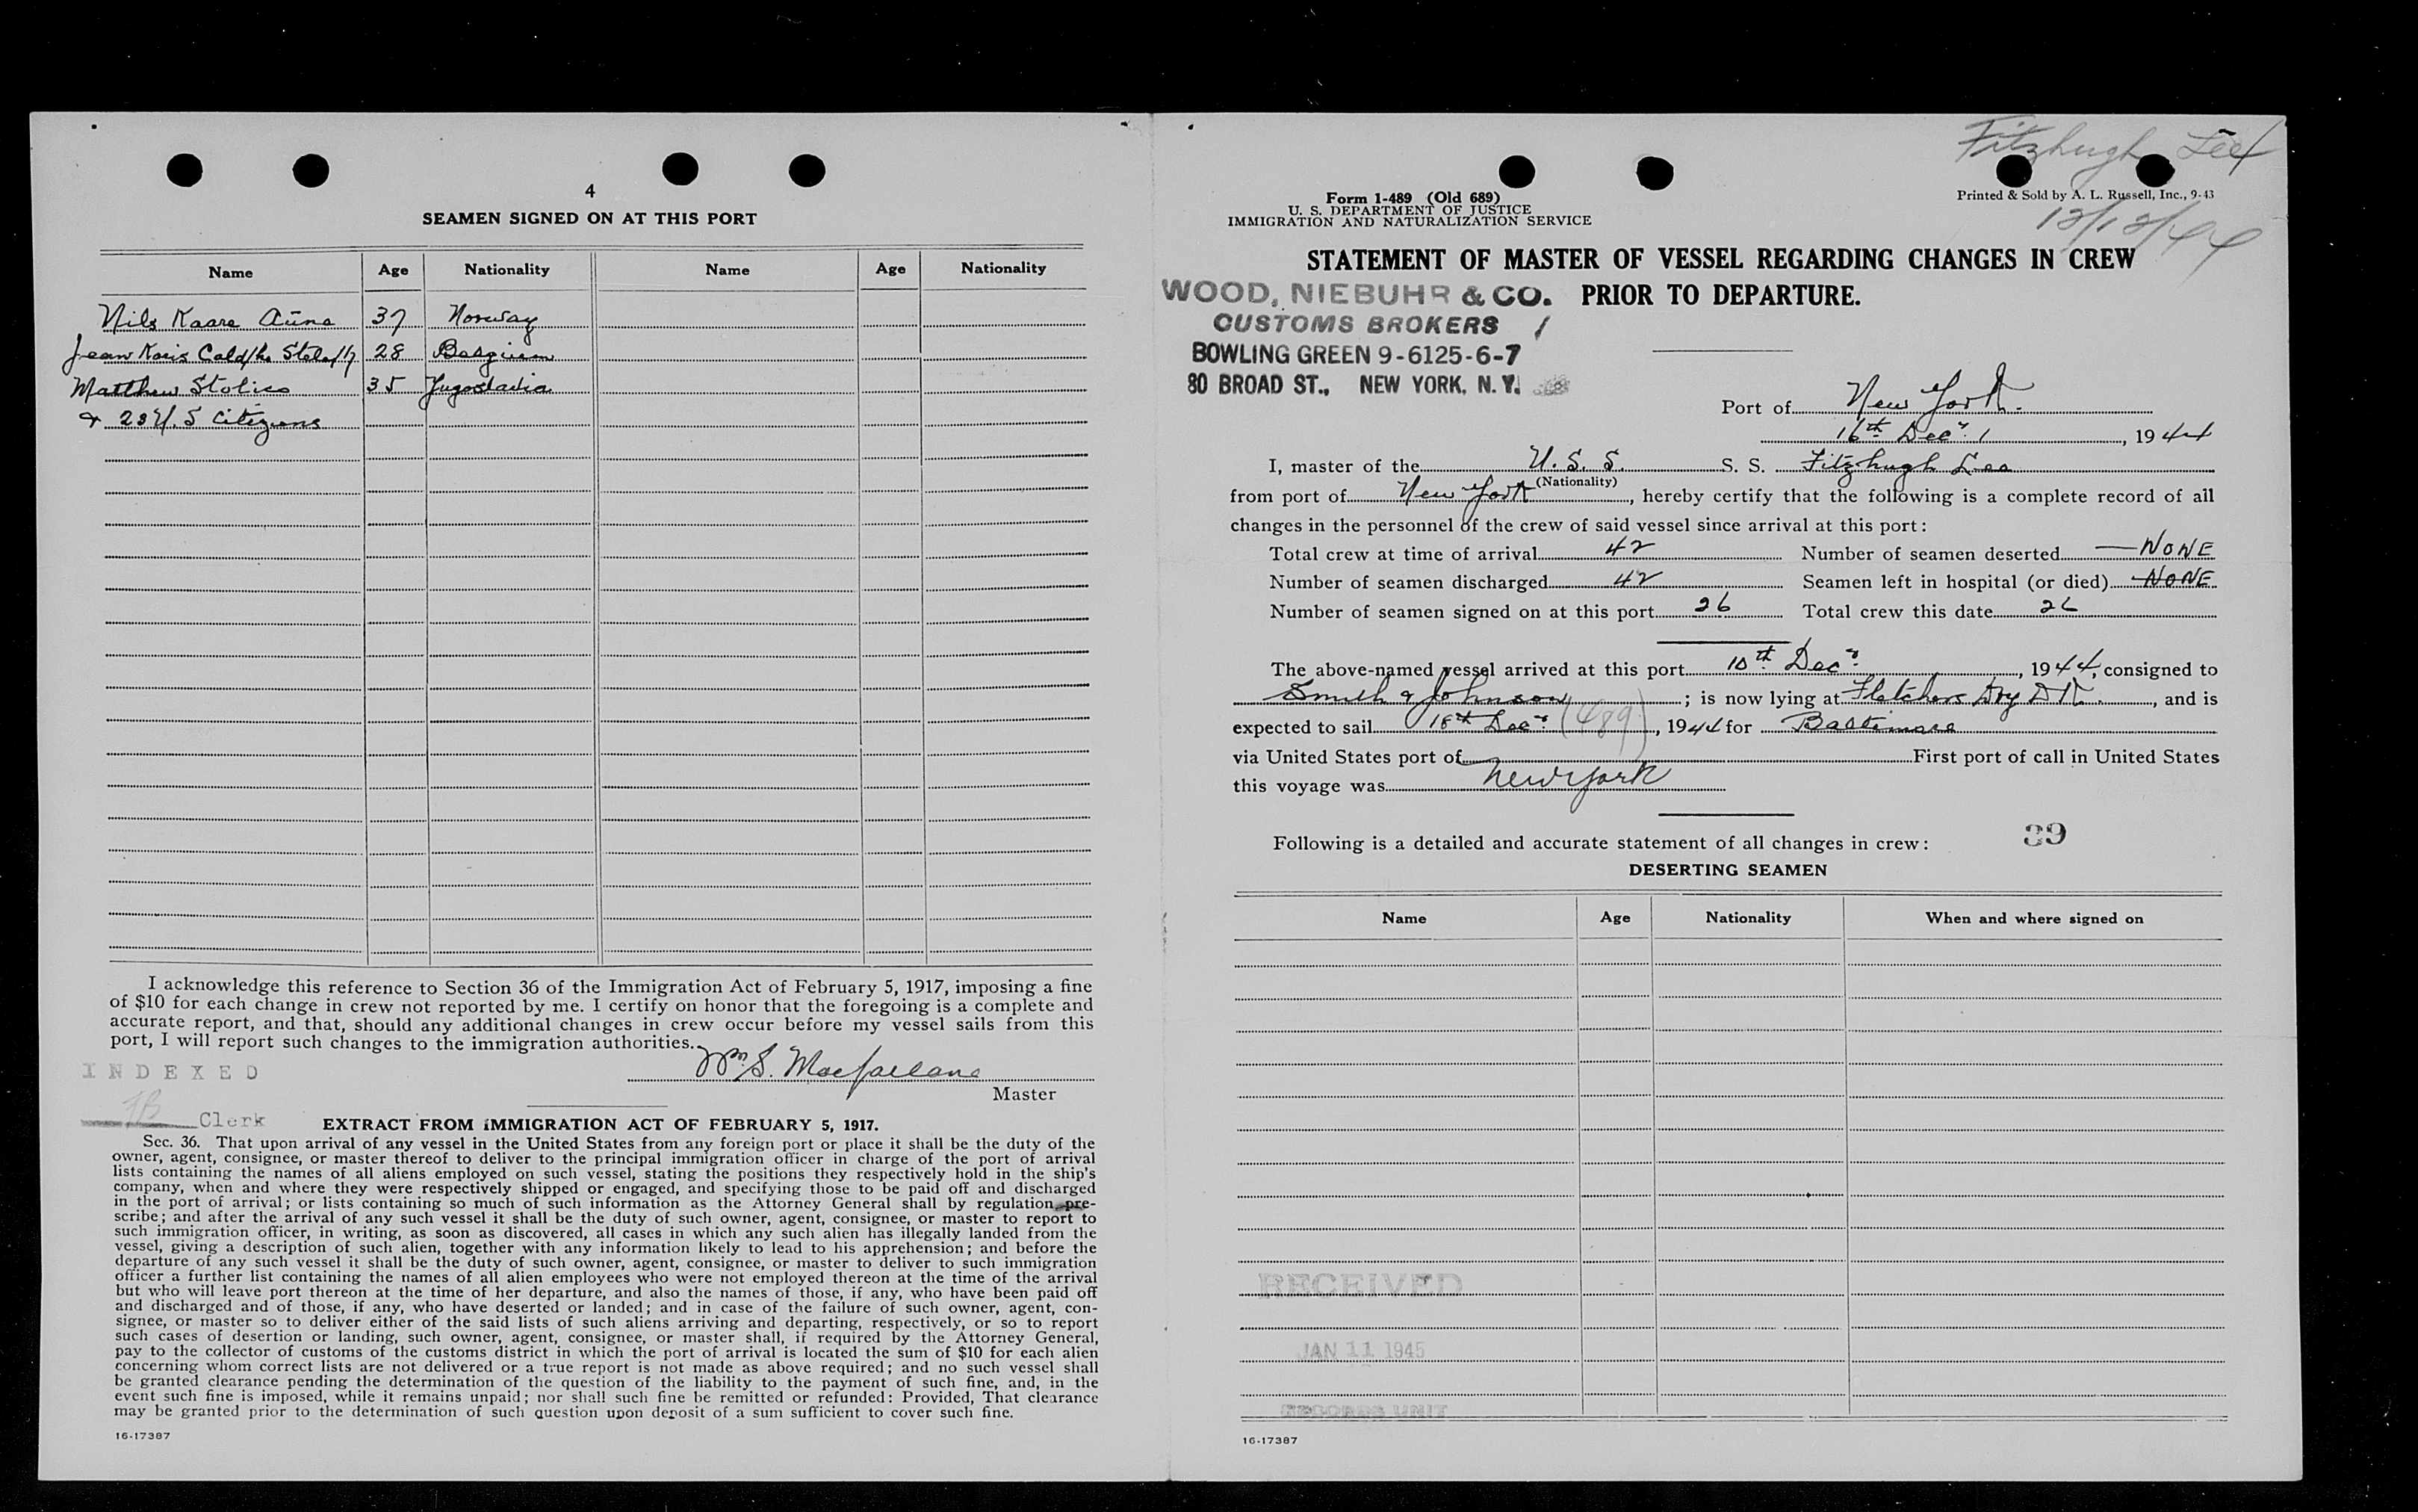 4
SEAMEN SIGNED ON AT THIS PORT
Name Age Nationality Name Age Nationality
Nils Kaare Aüne 37 Norway
Jean 28 Belgium
Matthew 35 Jugoslavia
& 23 U.S Citizens
I acknowledge this reference to Section 36 of the Immigration Act of February 5, 1917, imposing a fine
of $10 for each change in crew not reported by me. I certify on honor that the foregoing is a complete and
accurate report, and that, should any additional changes in crew occur before my vessel sails from this
port, I will report such changes to the immigration authorities.
Wm S. Macfarlane
Master
INDEXED
Clerk
EXTRACT FROM IMMIGRATION ACT OF FEBRUARY 5, 1917.
Sec. 36. That upon arrival of any vessel in the United States from any foreign port or place it shall be the duty of the
owner, agent, consignee, or master thereof to deliver to the principal immigration officer in charge of the port of arrival
lists containing the names of all aliens employed on such vessel, stating the positions they respectively hold in the ship's
company, when and where they were respectively shipped or engaged, and specifying those to be paid off and discharged
in the port of arrival; or lists containing so much of such information as the Attorney General shall by regulation pre-
scribe; and after the arrival of any such vessel it shall be the duty of such owner, agent, consignee, or master to report to
such immigration officer, in writing, as soon as discovered, all cases in which any such alien has illegally landed from the
vessel, giving a description of such alien, together with any information likely to lead to his apprehension; and before the
departure of any such vessel it shall be the duty of such owner, agent, consignee, or master to deliver to such immigration
officer a further list containing the names of all alien employees who were not employed thereon at the time of the arrival
but who will leave port thereon at the time of her departure, and also the names of those, if any, who have been paid off
and discharged and of those, if any, who have deserted or landed; and in case of the failure of such owner, agent, con-
signee, or master so to deliver either of the said lists of such aliens arriving and departing, respectively, or so to report
such cases of desertion or landing, such owner, agent, consignee, or master shall, if required by the Attorney General,
pay to the collector of customs of the customs district in which the port of arrival is located the sum of $10 for each alien
concerning whom correct lists are not delivered or a true report is not made as above required; and no such vessel shall
be granted clearance pending the determination of the question of the liability to the payment of such fine, and, in the
event such fine is imposed, while it remains unpaid; nor shall such fine be remitted or refunded: Provided, That clearance
may be granted prior to the determination of such question upon deposit of a sum sufficient to cover such fine.
16-17387
Fitzhugh Lee
Form 1-489 (Old 689)
U. S. DEPARTMENT OF JUSTICE
IMMIGRATION AND NATURALIZATION SERVICE
Printed & Sold by A. L. Russell, Inc., 9-43
12/12/44
STATEMENT OF MASTER OF VESSEL REGARDING CHANGES IN CREW
PRIOR TO DEPARTURE.
WOOD, NIEBUHR & CO.
CUSTOMS BROKERS
BOWLING GREEN 9-6125-6-7
80 BROAD ST., NEW YORK, N.Y.
Port of New York.
16th Decr. , 1944
I, master of the U.S.S. S. S. Fitzhugh Lee
(Nationality)
from port of New York, hereby certify that the following is a complete record of all
changes in the personnel of the crew of said vessel since arrival at this port:
Total crew at time of arrival 42 Number of seamen deserted — NONE
Number of seamen discharged 42 Seamen left in hospital (or died) NONE
Number of seamen signed on at this port 26 Total crew this date 26
The above-named vessel arrived at this port 10th Decr., 1944, consigned to
Smith & Johnson; is now lying at Fletchers Dry Dk., and is
expected to sail 18th Decr. (489), 1944 for Baltimore
via United States port of First port of call in United States
this voyage was New York
Following is a detailed and accurate statement of all changes in crew: 39
DESERTING SEAMEN
Name Age Nationality When and where signed on
RECEIVED
JAN 11 1945
RECORDS UNIT
16-17387